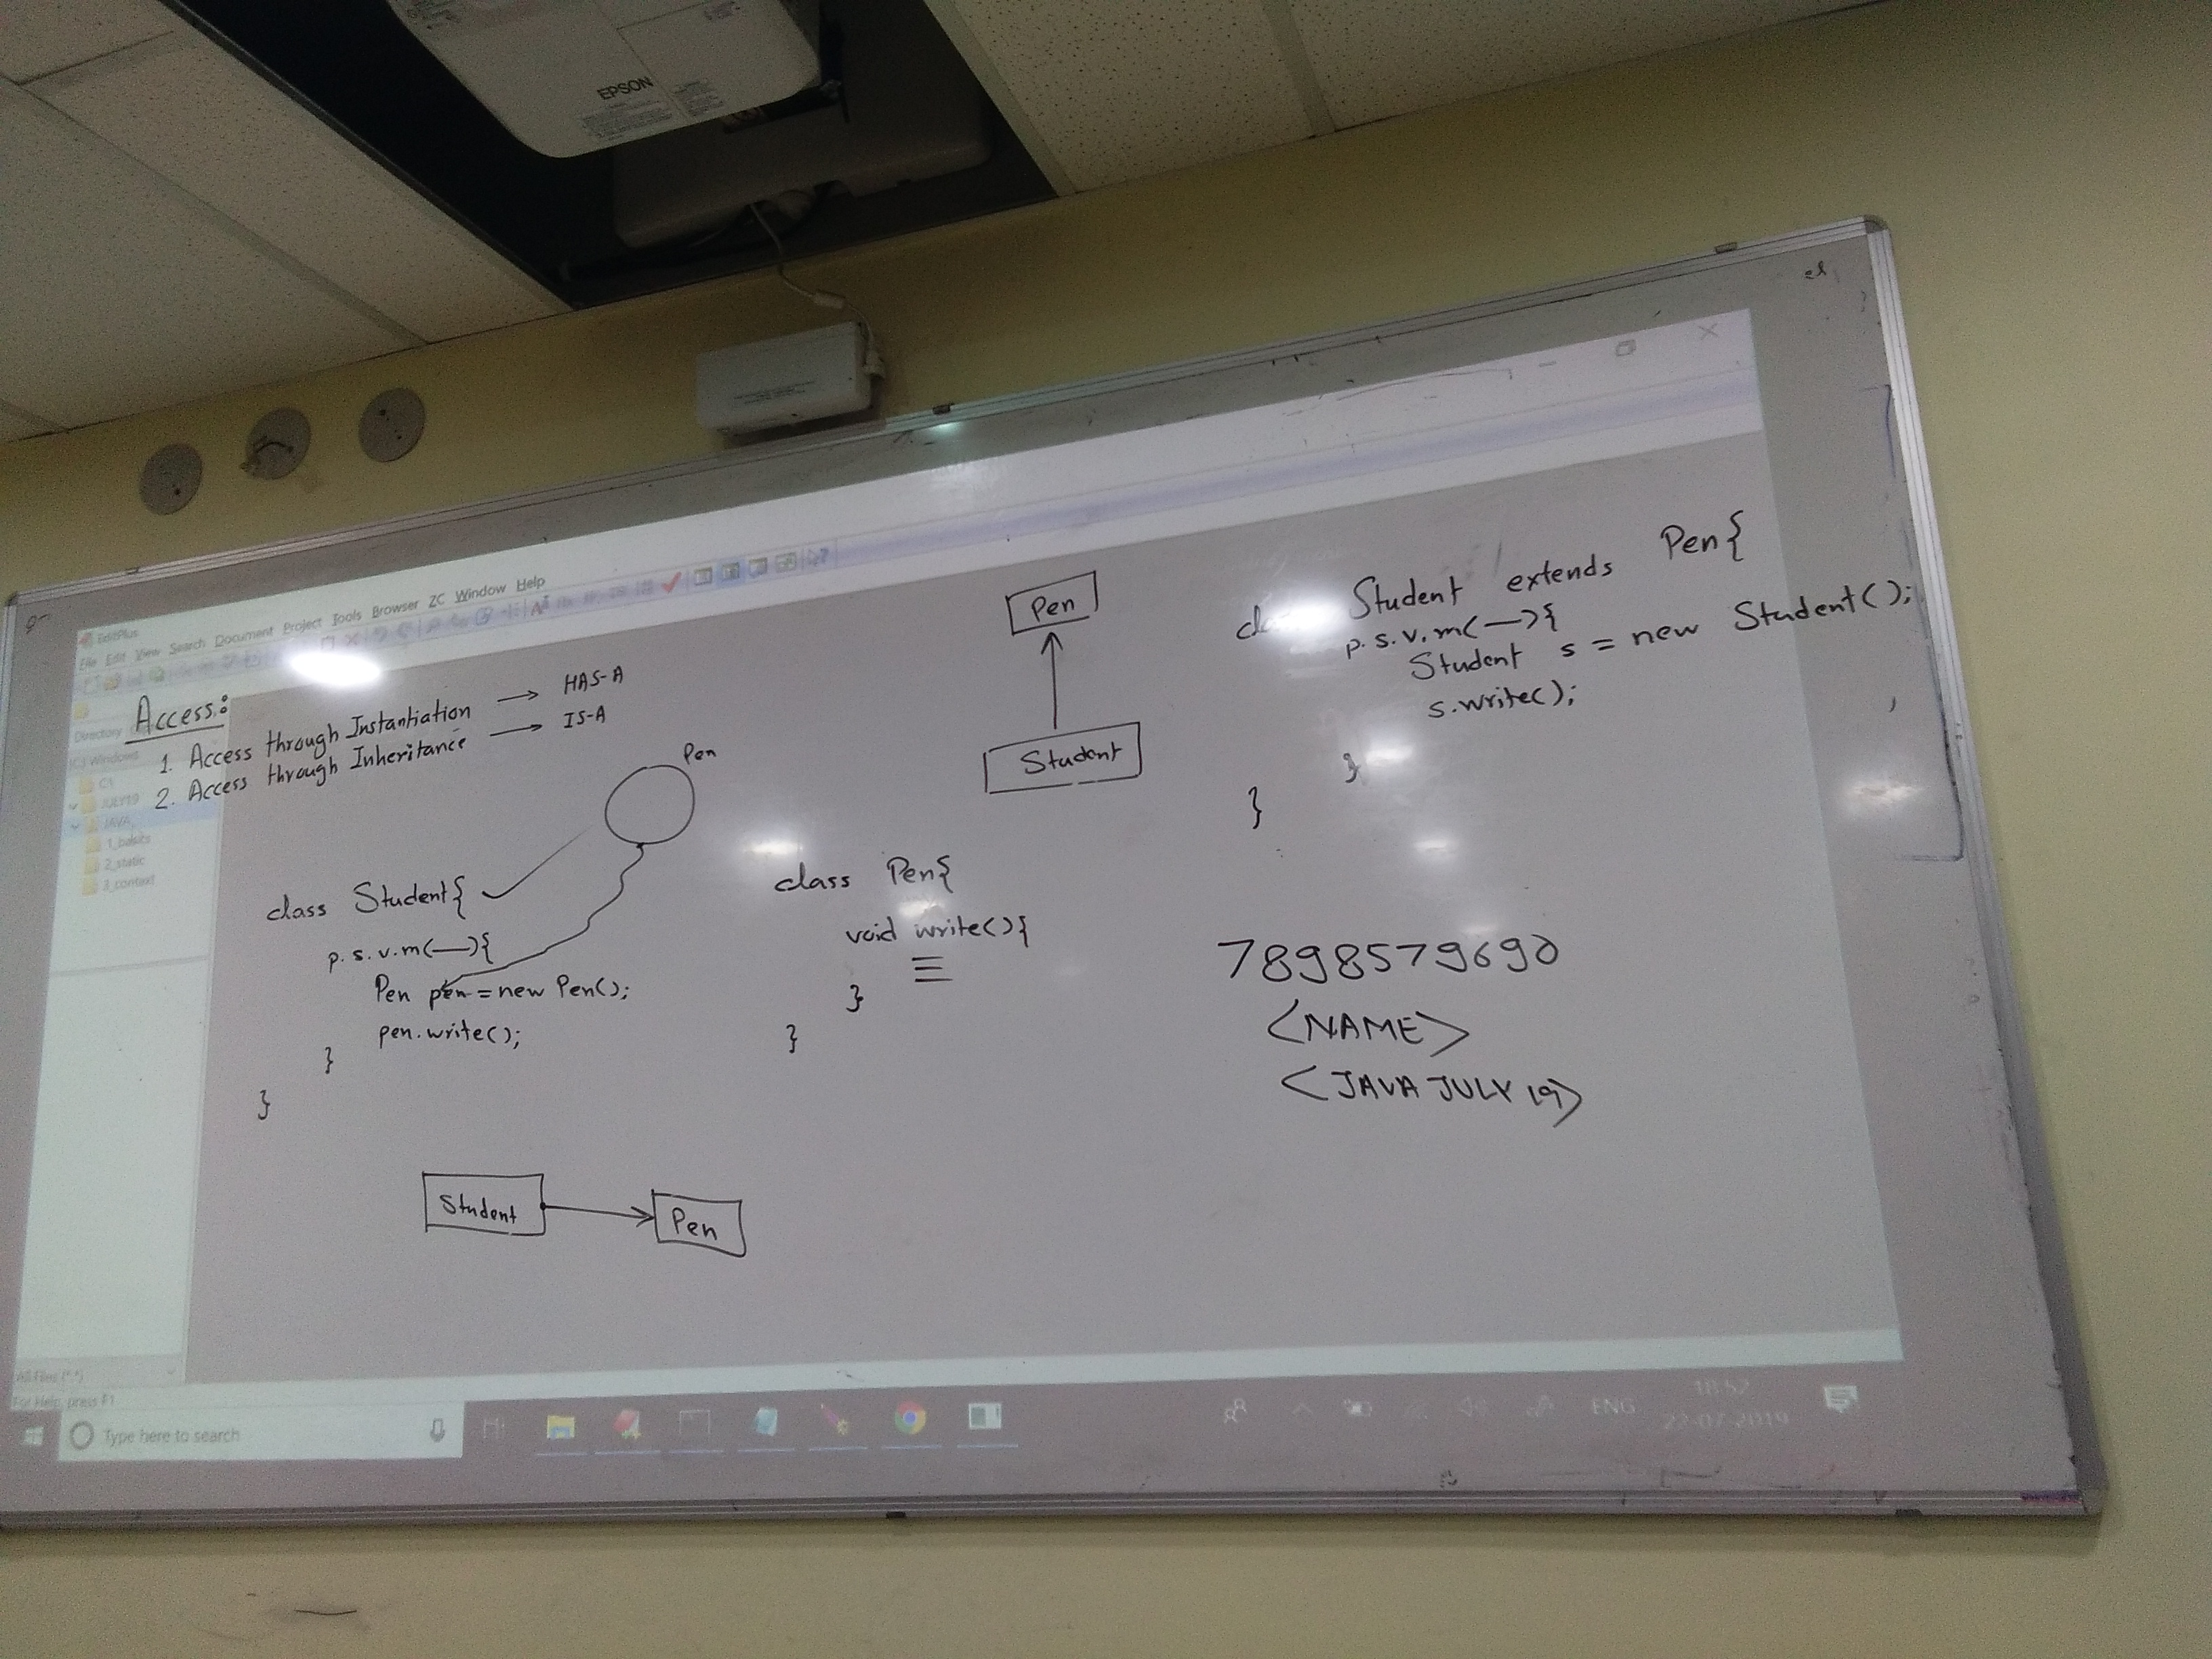 EPSON
EditPlus
File Edit View Search Document Project Tools Browser ZC Window Help
Directory
[C:] Windows
C:\
JULY19
JAVA
1_basics
2_static
3_context
Access:
1. Access through Instantiation → HAS-A
2. Access through Inheritance → IS-A
Pen
class Student{
p.s.v.m(—){
Pen pen = new Pen();
pen.write();
}
}
Student → Pen
class Pen{
void write(){
}
}
Pen
Student
class Student extends Pen{
p.s.v.m(—){
Student s = new Student();
s.write();
}
}
7898579690
<NAME>
<JAVA JULY 19>
All Files (*.*)
For Help, press F1
Type here to search
ENG
18:52
22-07-2019